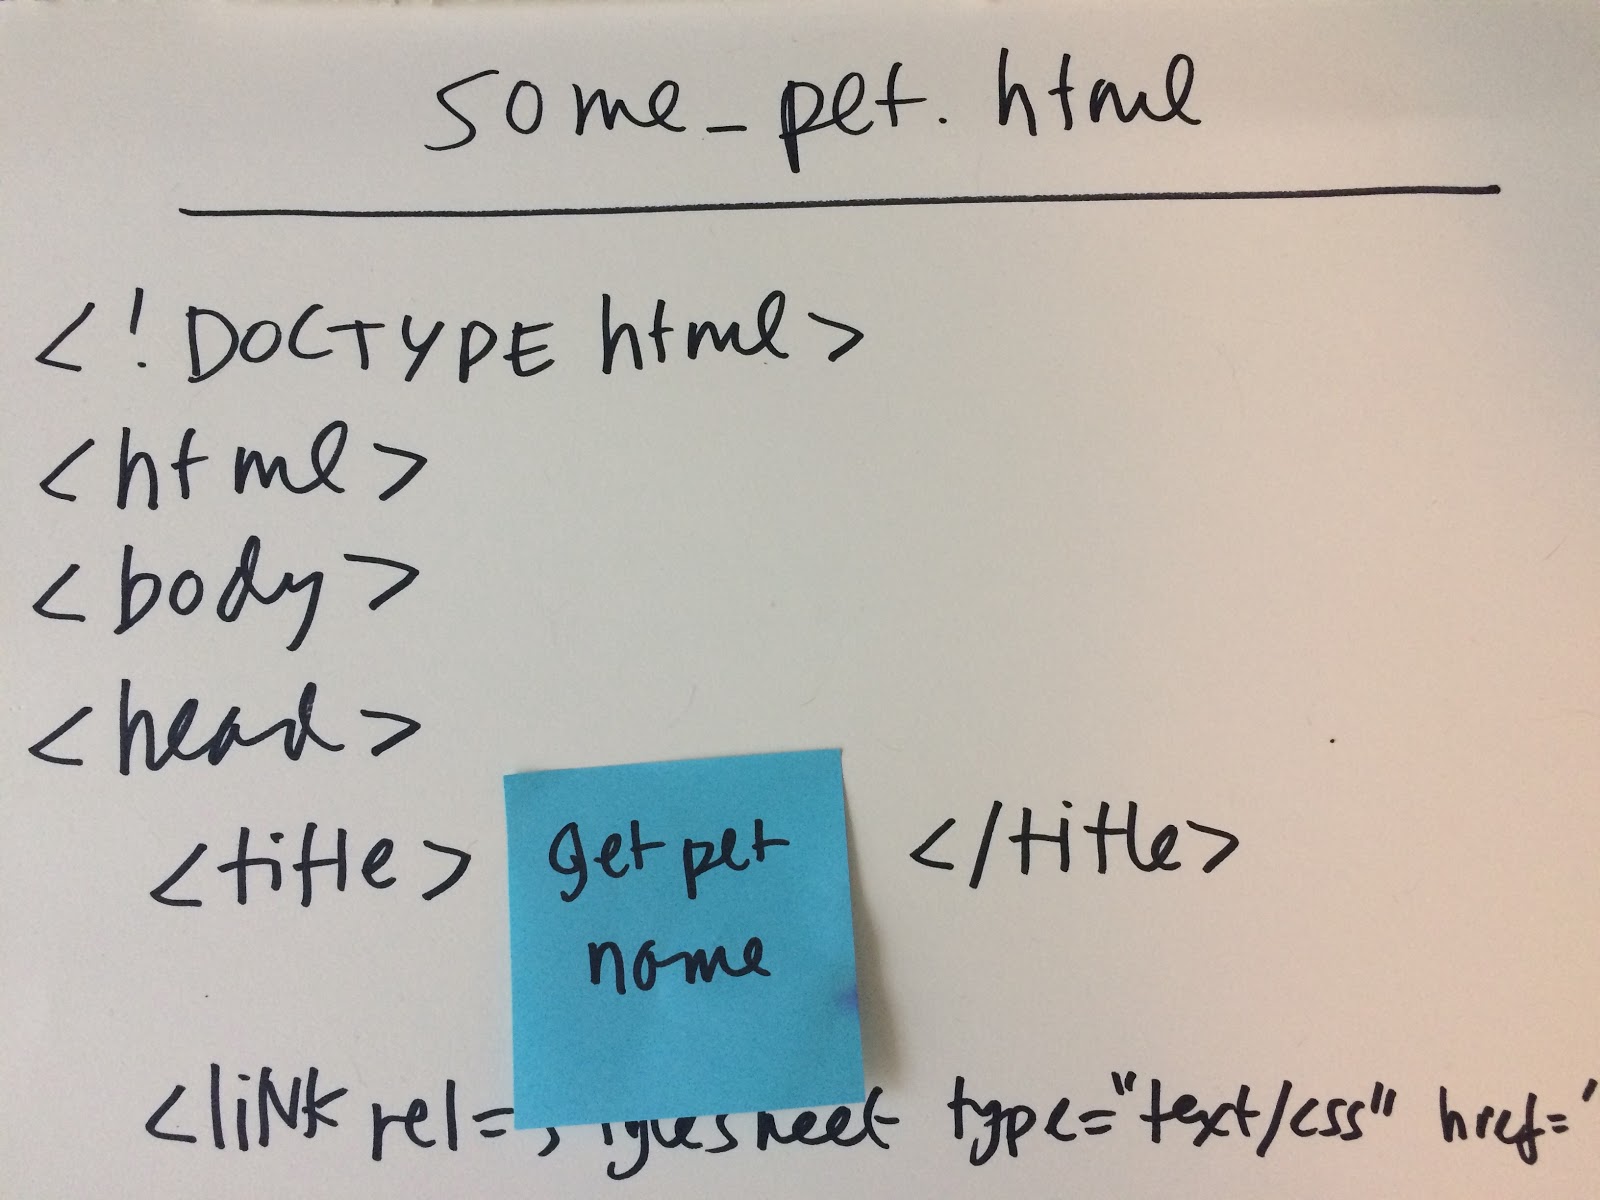 some_pet.html
<!DOCTYPE html>
<html>
<body>
<head>
<title> get pet name </title>
<link rel= stylesheet type="text/css" href="